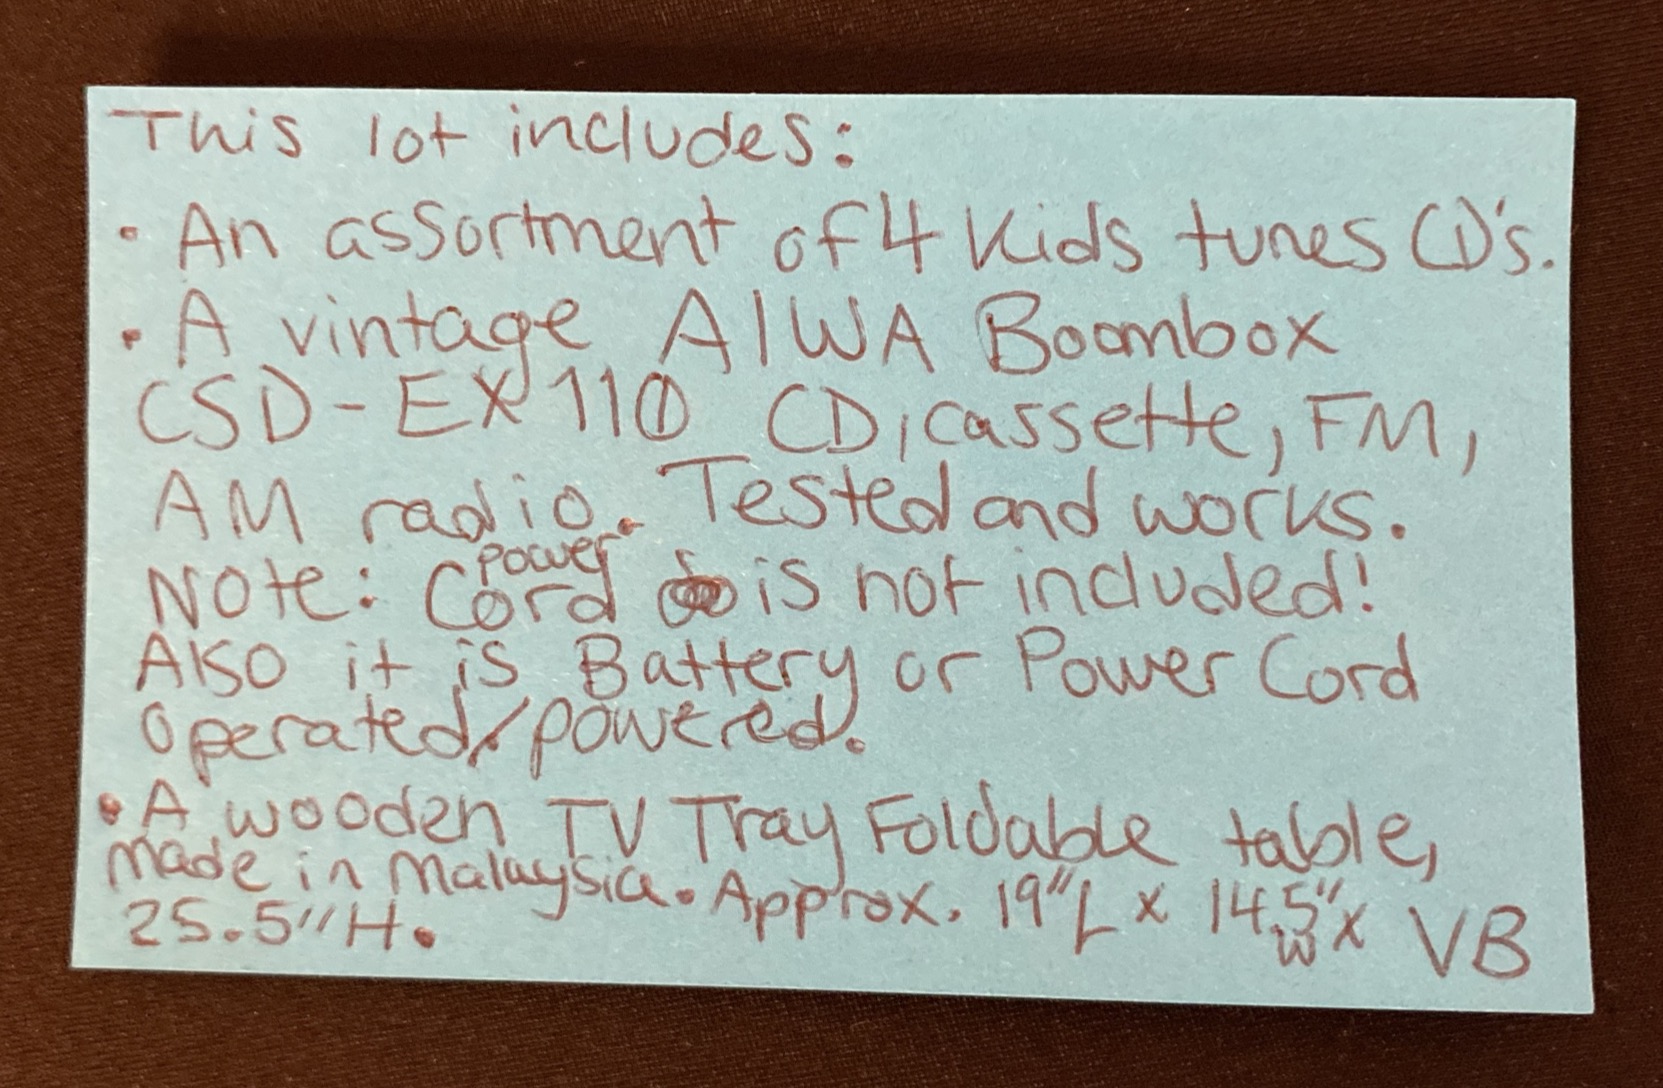 This lot includes:
• An assortment of 4 Kids tunes CD's.
• A vintage AIWA Boombox
CSD-EX110 CD, cassette, FM,
AM radio. Tested and works.
Note: power Cord is not included!
Also it is Battery or Power Cord
operated/powered.
• A wooden TV Tray Foldable table,
made in Malaysia. Approx. 19"L x 14.5"W x
25.5"H. VB